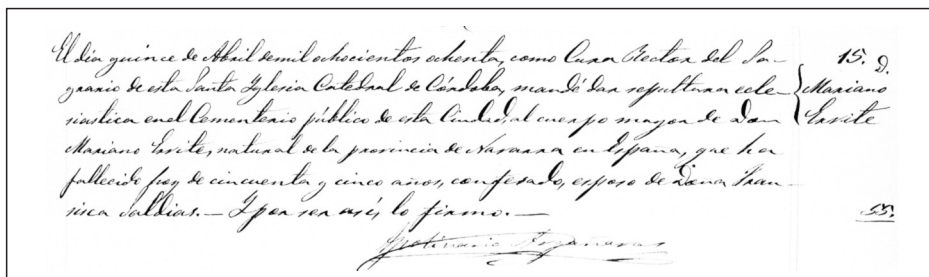 El dia quince de Abril de mil ochocientos ochenta, como Cura Rector del Sa-
grario de esta Santa Yglesia Catedral de Córdoba, mandé dar sepultura ecle-
siastica en el Cementerio público de esta Ciudad, al cuerpo mayor de Don
Mariano Ervite, natural de la provincia de Navarra en España, que ha
fallecido hoy de cincuenta y cinco años, confesado, esposo de Dona Fran-
sisca Saldias.— Y por ser asi, lo firmo.—
15. D.
Mariano
Ervite
55.
Apolinario Argañaras